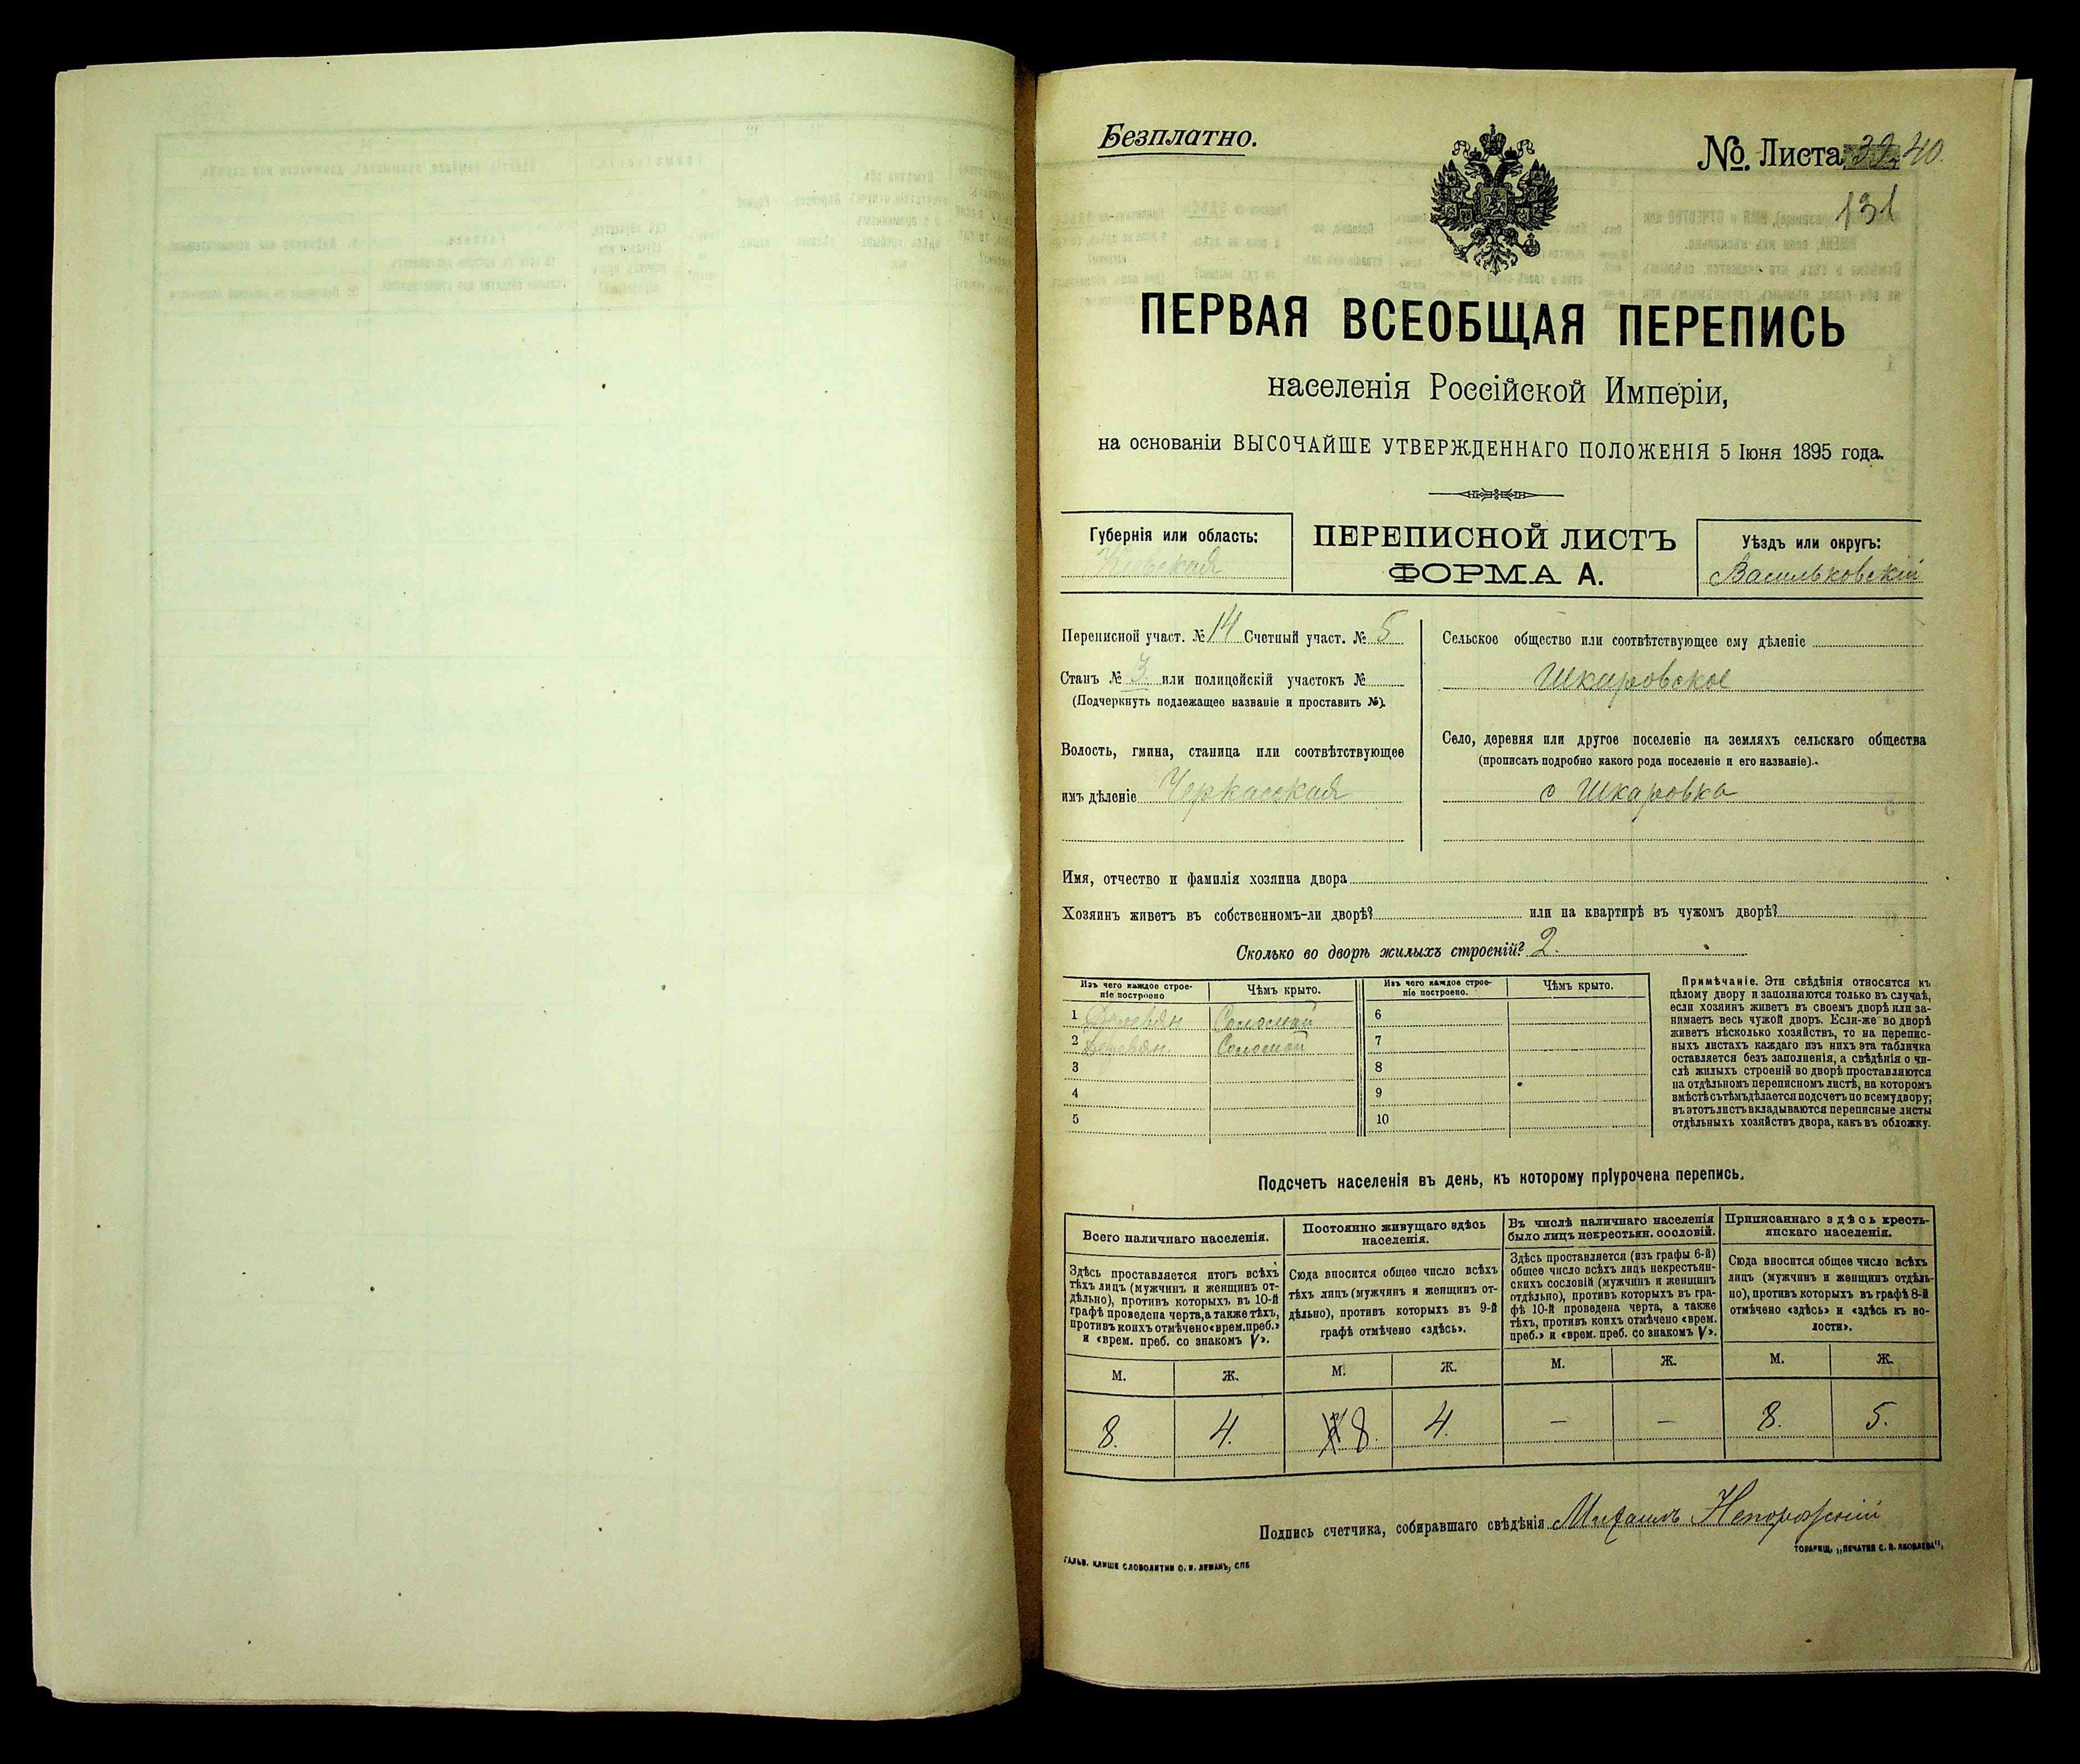 Безплатно.
№ Листа 39 40.
131
ПЕРВАЯ ВСЕОБЩАЯ ПЕРЕПИСЬ
населенія Россійской Имперіи,
на основаніи ВЫСОЧАЙШЕ УТВЕРЖДЕННАГО ПОЛОЖЕНІЯ 5 Іюня 1895 года.
Губернія или область:
Кіевская
ПЕРЕПИСНОЙ ЛИСТЪ
ФОРМА А.
Уѣздъ или округъ:
Васильковскій
Переписной участ. № 14 Счетный участ. № 5
Станъ № 3. или полицейскій участокъ №
(Подчеркнуть подлежащее названіе и проставить №).
Волость, гмина, станица или соотвѣтствующее
имъ дѣленіе Черкасская
Сельское общество или соотвѣтствующее ему дѣленіе
Шкаровское
Село, деревня или другое поселеніе на земляхъ сельскаго общества
(прописать подробно какого рода поселеніе и его названіе).
с Шкаровка
Имя, отчество и фамилія хозяина двора
Хозяинъ живетъ въ собственномъ-ли дворѣ? или на квартирѣ въ чужомъ дворѣ?
Сколько во дворѣ жилыхъ строеній? 2.
Изъ чего каждое строе-
ніе построено
Чѣмъ крыто.
Изъ чего каждое строе-
ніе построено.
Чѣмъ крыто.
1 Деревян Соломой 6
2 Деревян. Соломой 7
3 8
4 9
5 10
Примѣчаніе. Эти свѣдѣнія относятся къ
цѣлому двору и заполняются только въ случаѣ,
если хозяинъ живетъ въ своемъ дворѣ или за-
нимаетъ весь чужой дворъ. Если-же во дворѣ
живетъ нѣсколько хозяйствъ, то на перепис-
ныхъ листахъ каждаго изъ нихъ эта табличка
оставляется безъ заполненія, а свѣдѣнія о чи-
слѣ жилыхъ строеній во дворѣ проставляются
на отдѣльномъ переписномъ листѣ, на которомъ
вмѣстѣ съ тѣмъ дѣлается подсчетъ по всему двору;
въ этотъ листъ вкладываются переписные листы
отдѣльныхъ хозяйствъ двора, какъ въ обложку.
Подсчетъ населенія въ день, къ которому пріурочена перепись.
Всего наличнаго населенія.
Здѣсь проставляется итогъ всѣхъ
тѣхъ лицъ (мужчинъ и женщинъ от-
дѣльно), противъ которыхъ въ 10-й
графѣ проведена черта, а также тѣхъ,
противъ коихъ отмѣчено «врем. преб.»
и «врем. преб. со знакомъ V».
Постоянно живущаго здѣсь
населенія.
Сюда вносится общее число всѣхъ
тѣхъ лицъ (мужчинъ и женщинъ от-
дѣльно), противъ которыхъ въ 9-й
графѣ отмѣчено «здѣсь».
Въ числѣ наличнаго населенія
было лицъ некрестьян. сословій.
Здѣсь проставляется (изъ графы 6-й)
общее число всѣхъ лицъ некрестьян-
скихъ сословій (мужчинъ и женщинъ
отдѣльно), противъ которыхъ въ гра-
фѣ 10-й проведена черта, а также
тѣхъ, противъ коихъ отмѣчено «врем.
преб.» и «врем. преб. со знакомъ V».
Приписаннаго здѣсь кресть-
янскаго населенія.
Сюда вносится общее число всѣхъ
лицъ (мужчинъ и женщинъ отдѣль-
но), противъ которыхъ въ графѣ 8-й
отмѣчено «здѣсь» и «здѣсь къ во-
лости».
М. Ж. М. Ж. М. Ж. М. Ж.
8. 4. 8. 4. — — 8. 5.
Подпись счетчика, собиравшаго свѣдѣнія Михаилъ Непорожній
ГАЛЬВ. КЛИШЕ СЛОВОЛИТНИ О. И. ЛЕМАНЪ, СПБ
ТОВАРИЩ. „ПЕЧАТНЯ С. П. ЯКОВЛЕВА",